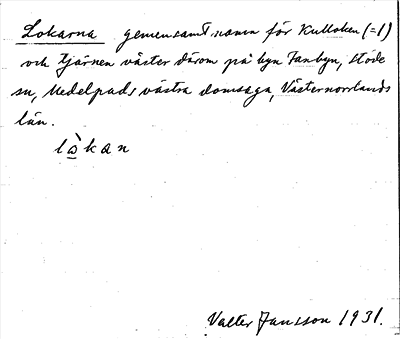 Lokarna gemensamt namn för Kulloken (=1)
och tjärnen väster därom på byn Fanbyn, Stöde
sn, Medelpads västra domsaga, Västernorrlands
län.
lò̲kan
Valter Jansson 1931.